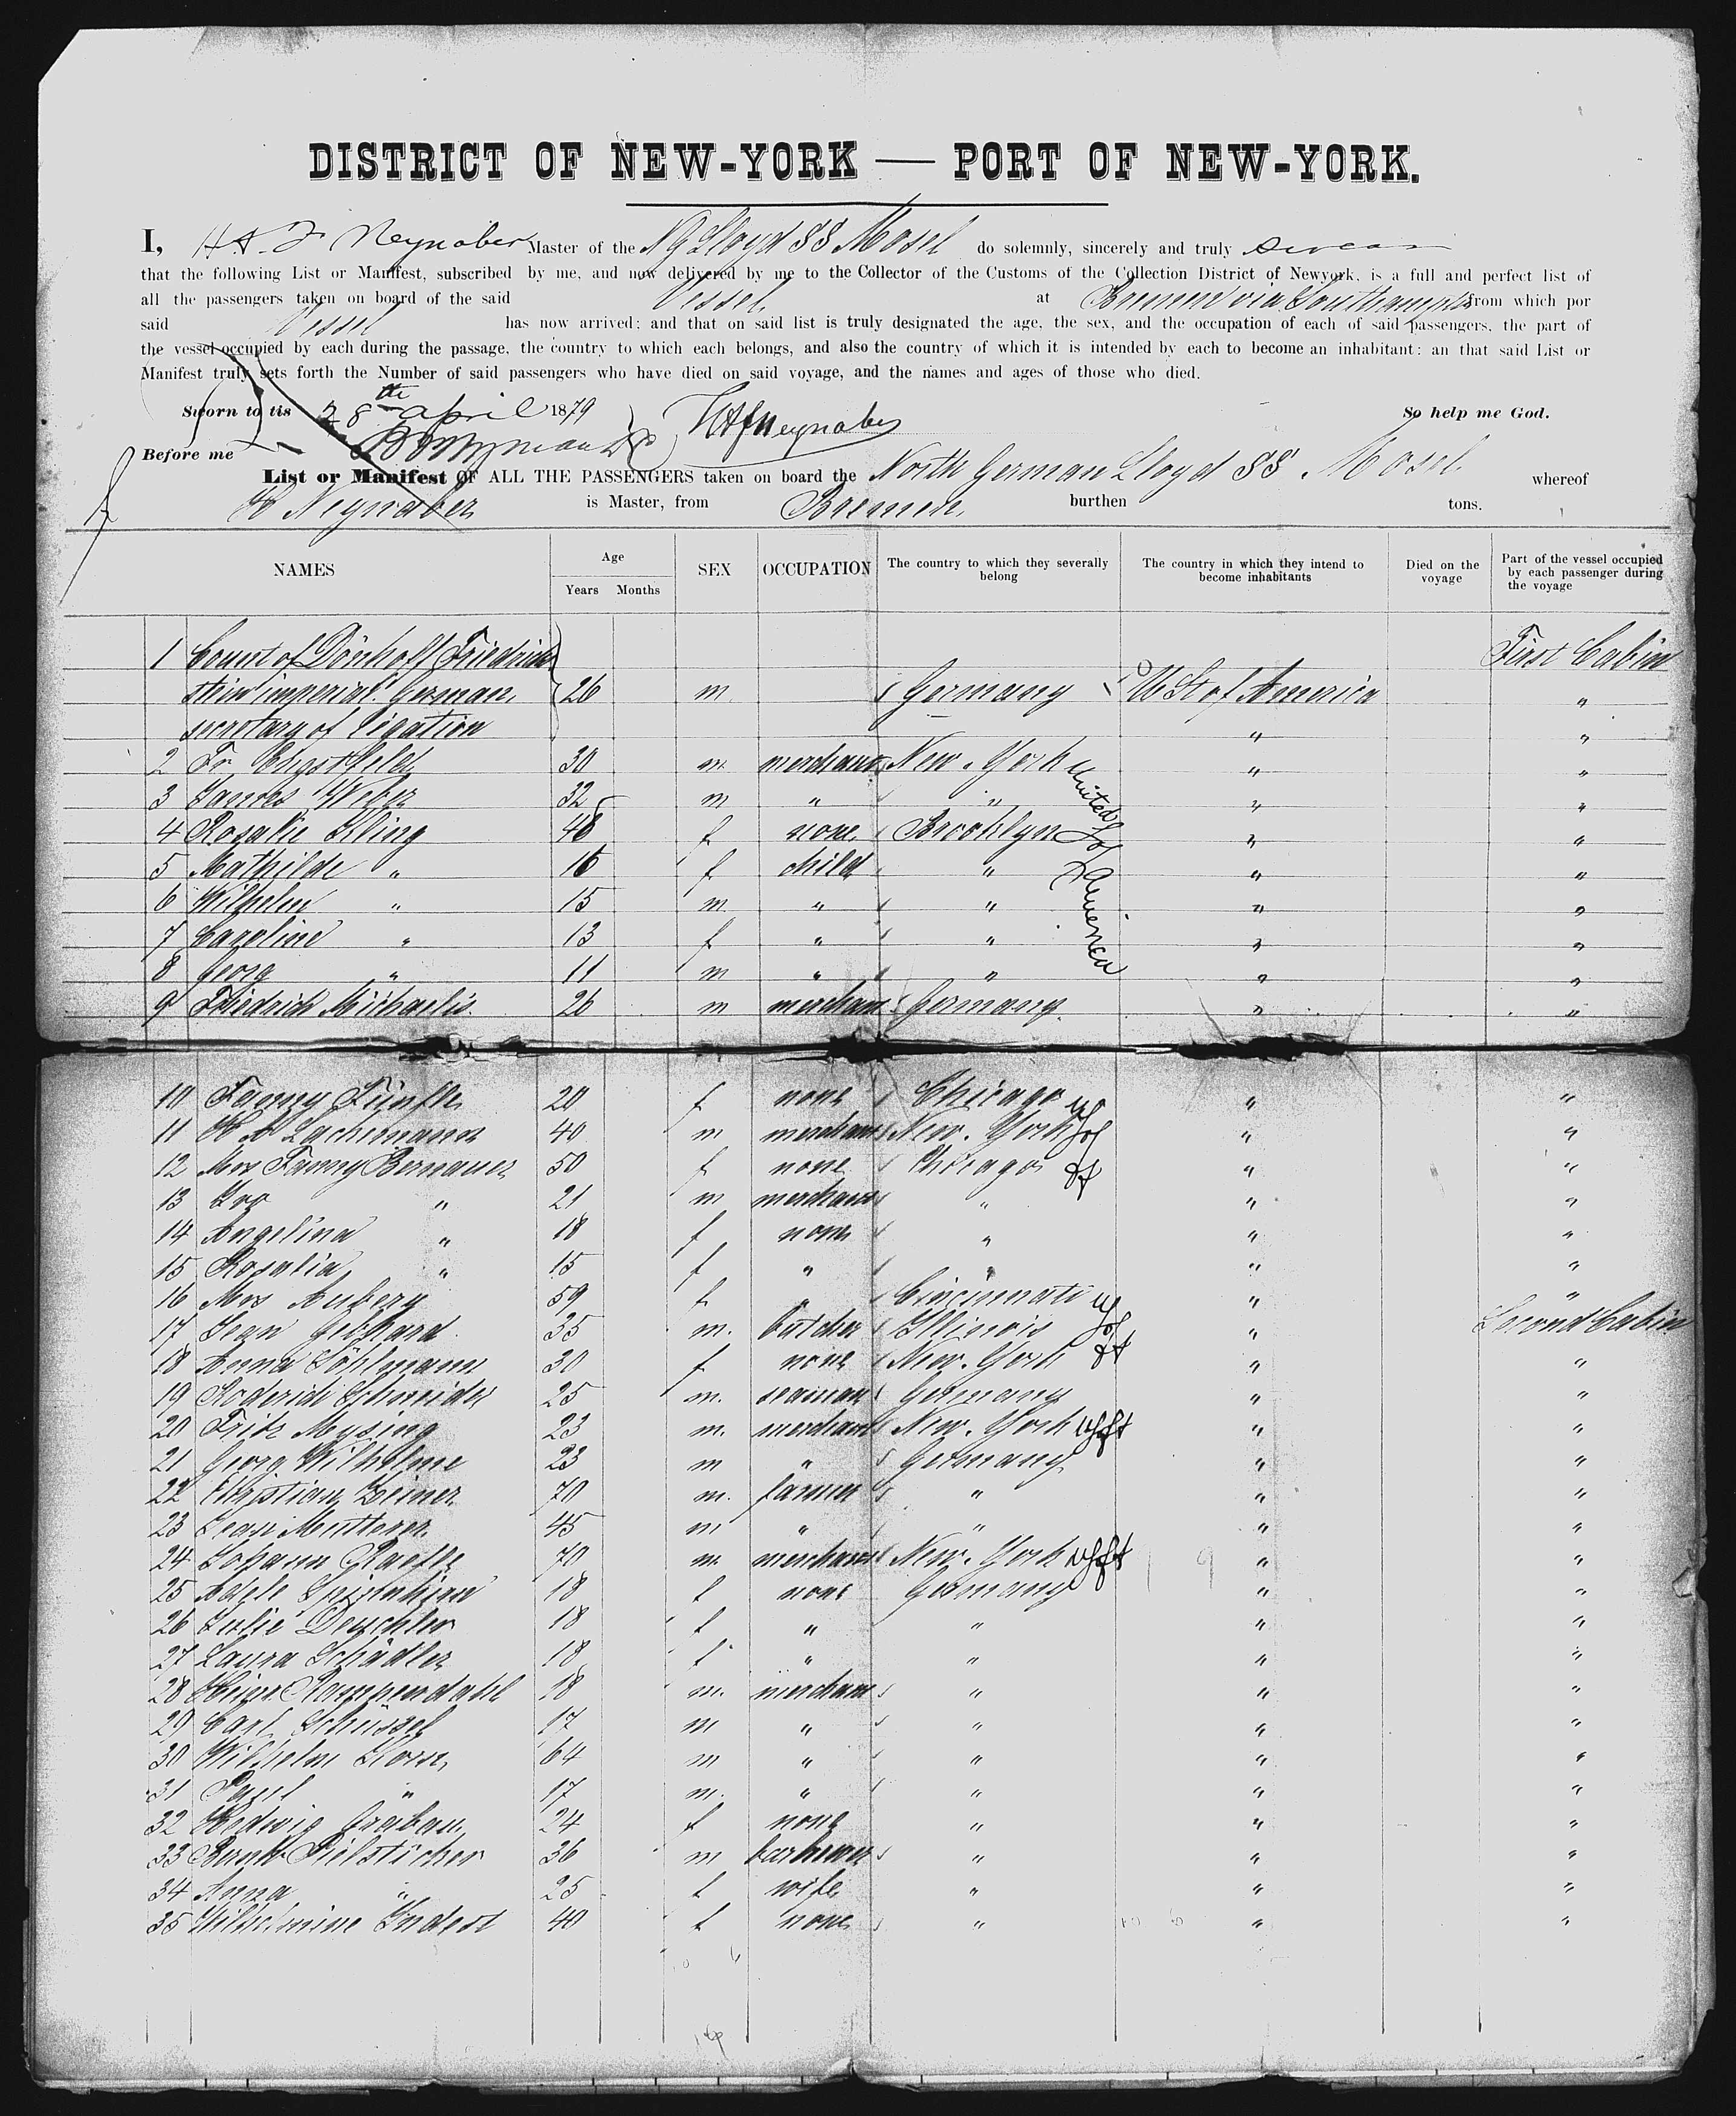 DISTRICT OF NEW-YORK — PORT OF NEW-YORK.
I, H. A. F. Neynaber Master of the N G Lloyd SS Mosel do solemnly, sincerely and truly swear
that the following List or Manifest, subscribed by me, and now delivered by me to the Collector of the Customs of the Collection District of Newyork, is a full and perfect list of
all the passengers taken on board of the said Vessel at Bremen via Southampton from which por
said Vessel has now arrived; and that on said list is truly designated the age, the sex, and the occupation of each of said passengers, the part of
the vessel occupied by each during the passage, the country to which each belongs, and also the country of which it is intended by each to become an inhabitant: an that said List or
Manifest truly sets forth the Number of said passengers who have died on said voyage, and the names and ages of those who died.
Sworn to tis 28th April 1879 HAFNeynaber So help me God.
Before me
List or Manifest OF ALL THE PASSENGERS taken on board the North German Lloyd SS Mosel whereof
H Neynaber is Master, from Bremen burthen tons.
NAMES Age Years Months SEX OCCUPATION The country to which they severally belong The country in which they intend to become inhabitants Died on the voyage Part of the vessel occupied by each passenger during the voyage
1 Count of Dönhoff Friedrich First Cabin
stein imperial German 26 m Germany U St of America "
secretary of Legation " "
2 Fr 30 m merchant New-York United " "
3 Weber 32 m " " " "
4 Rosalie Kling 48 f none Brooklyn " "
5 Mathilde " 16 f child " America " "
6 Wilhelm " 15 m " " " "
7 Caroline " 13 f " " " "
8 Georg " 11 m " " " "
9 Friedrich Michaelis 26 m merchant Germany " "
10 Fanny 20 f none Chicago " "
11 Lachmann 40 m merchant New-York " "
12 Mrs Fanny Bernauer 50 f none Chicago " "
13 " 21 m merchant " " "
14 Angelina " 18 f none " " "
15 Rosalia " 15 f " " " "
16 Mrs Auberg 59 f " Cincinnati " "
17 Jean Gebhard 35 m. butcher Illinois " Second Cabin
18 Anna Pöhlmann 30 f none New-York " "
19 Roderich Schneider 25 m. seaman Germany " "
20 Fritz Mysing 23 m. merchant New-York " "
21 Georg Wilhelmi 23 m " Germany " "
22 Christian 70 m. farmer " " "
23 Jean 45 m " " " "
24 Johann 70 m. merchant New-York " "
25 Adele 18 f none Germany " "
26 Julie Deuchler 18 f " " " "
27 Laura Schädler 18 f " " " "
28 Heinr. Rappendahl 18 m. merchant " " "
29 Carl Schüssel 17 m " " " "
30 Wilhelm Korn 64 m " " " "
31 Paul " 17 m. " " " "
32 Hedwig Graban 24 f none " " "
33 Pielsticker 36 m " " "
34 Anna " 25 f wife " " "
35 Wilhelmine Enders 40 f none " " "